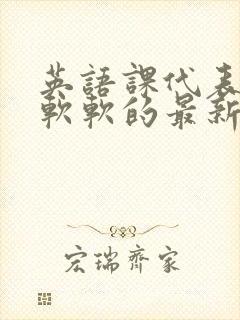 英語課代表
軟軟的最新
宏瑞齊家